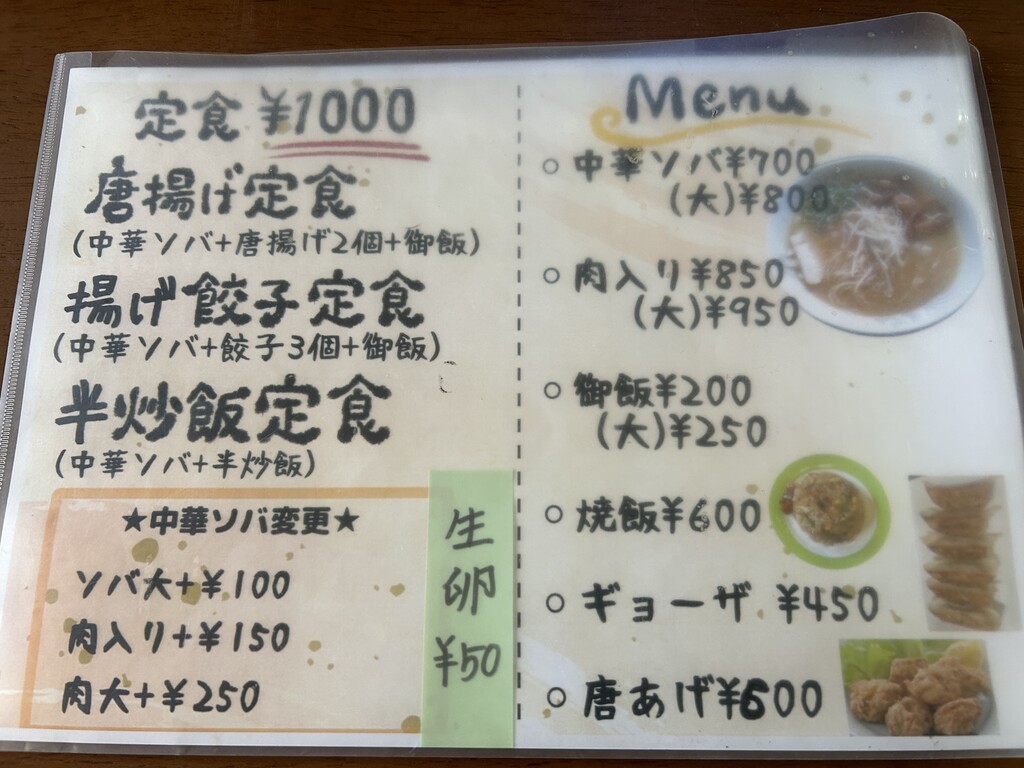 定食 ¥1000
唐揚げ定食
(中華ソバ+唐揚げ2個+御飯)
揚げ餃子定食
(中華ソバ+餃子3個+御飯)
半炒飯定食
(中華ソバ+半炒飯)
★中華ソバ変更★
ソバ大+¥100
肉入り+¥150
肉大+¥250
生卵
¥50
Menu
○中華ソバ¥700
(大)¥800
○肉入り¥850
(大)¥950
○御飯¥200
(大)¥250
○焼飯¥600
○ギョーザ ¥450
○唐あげ¥600